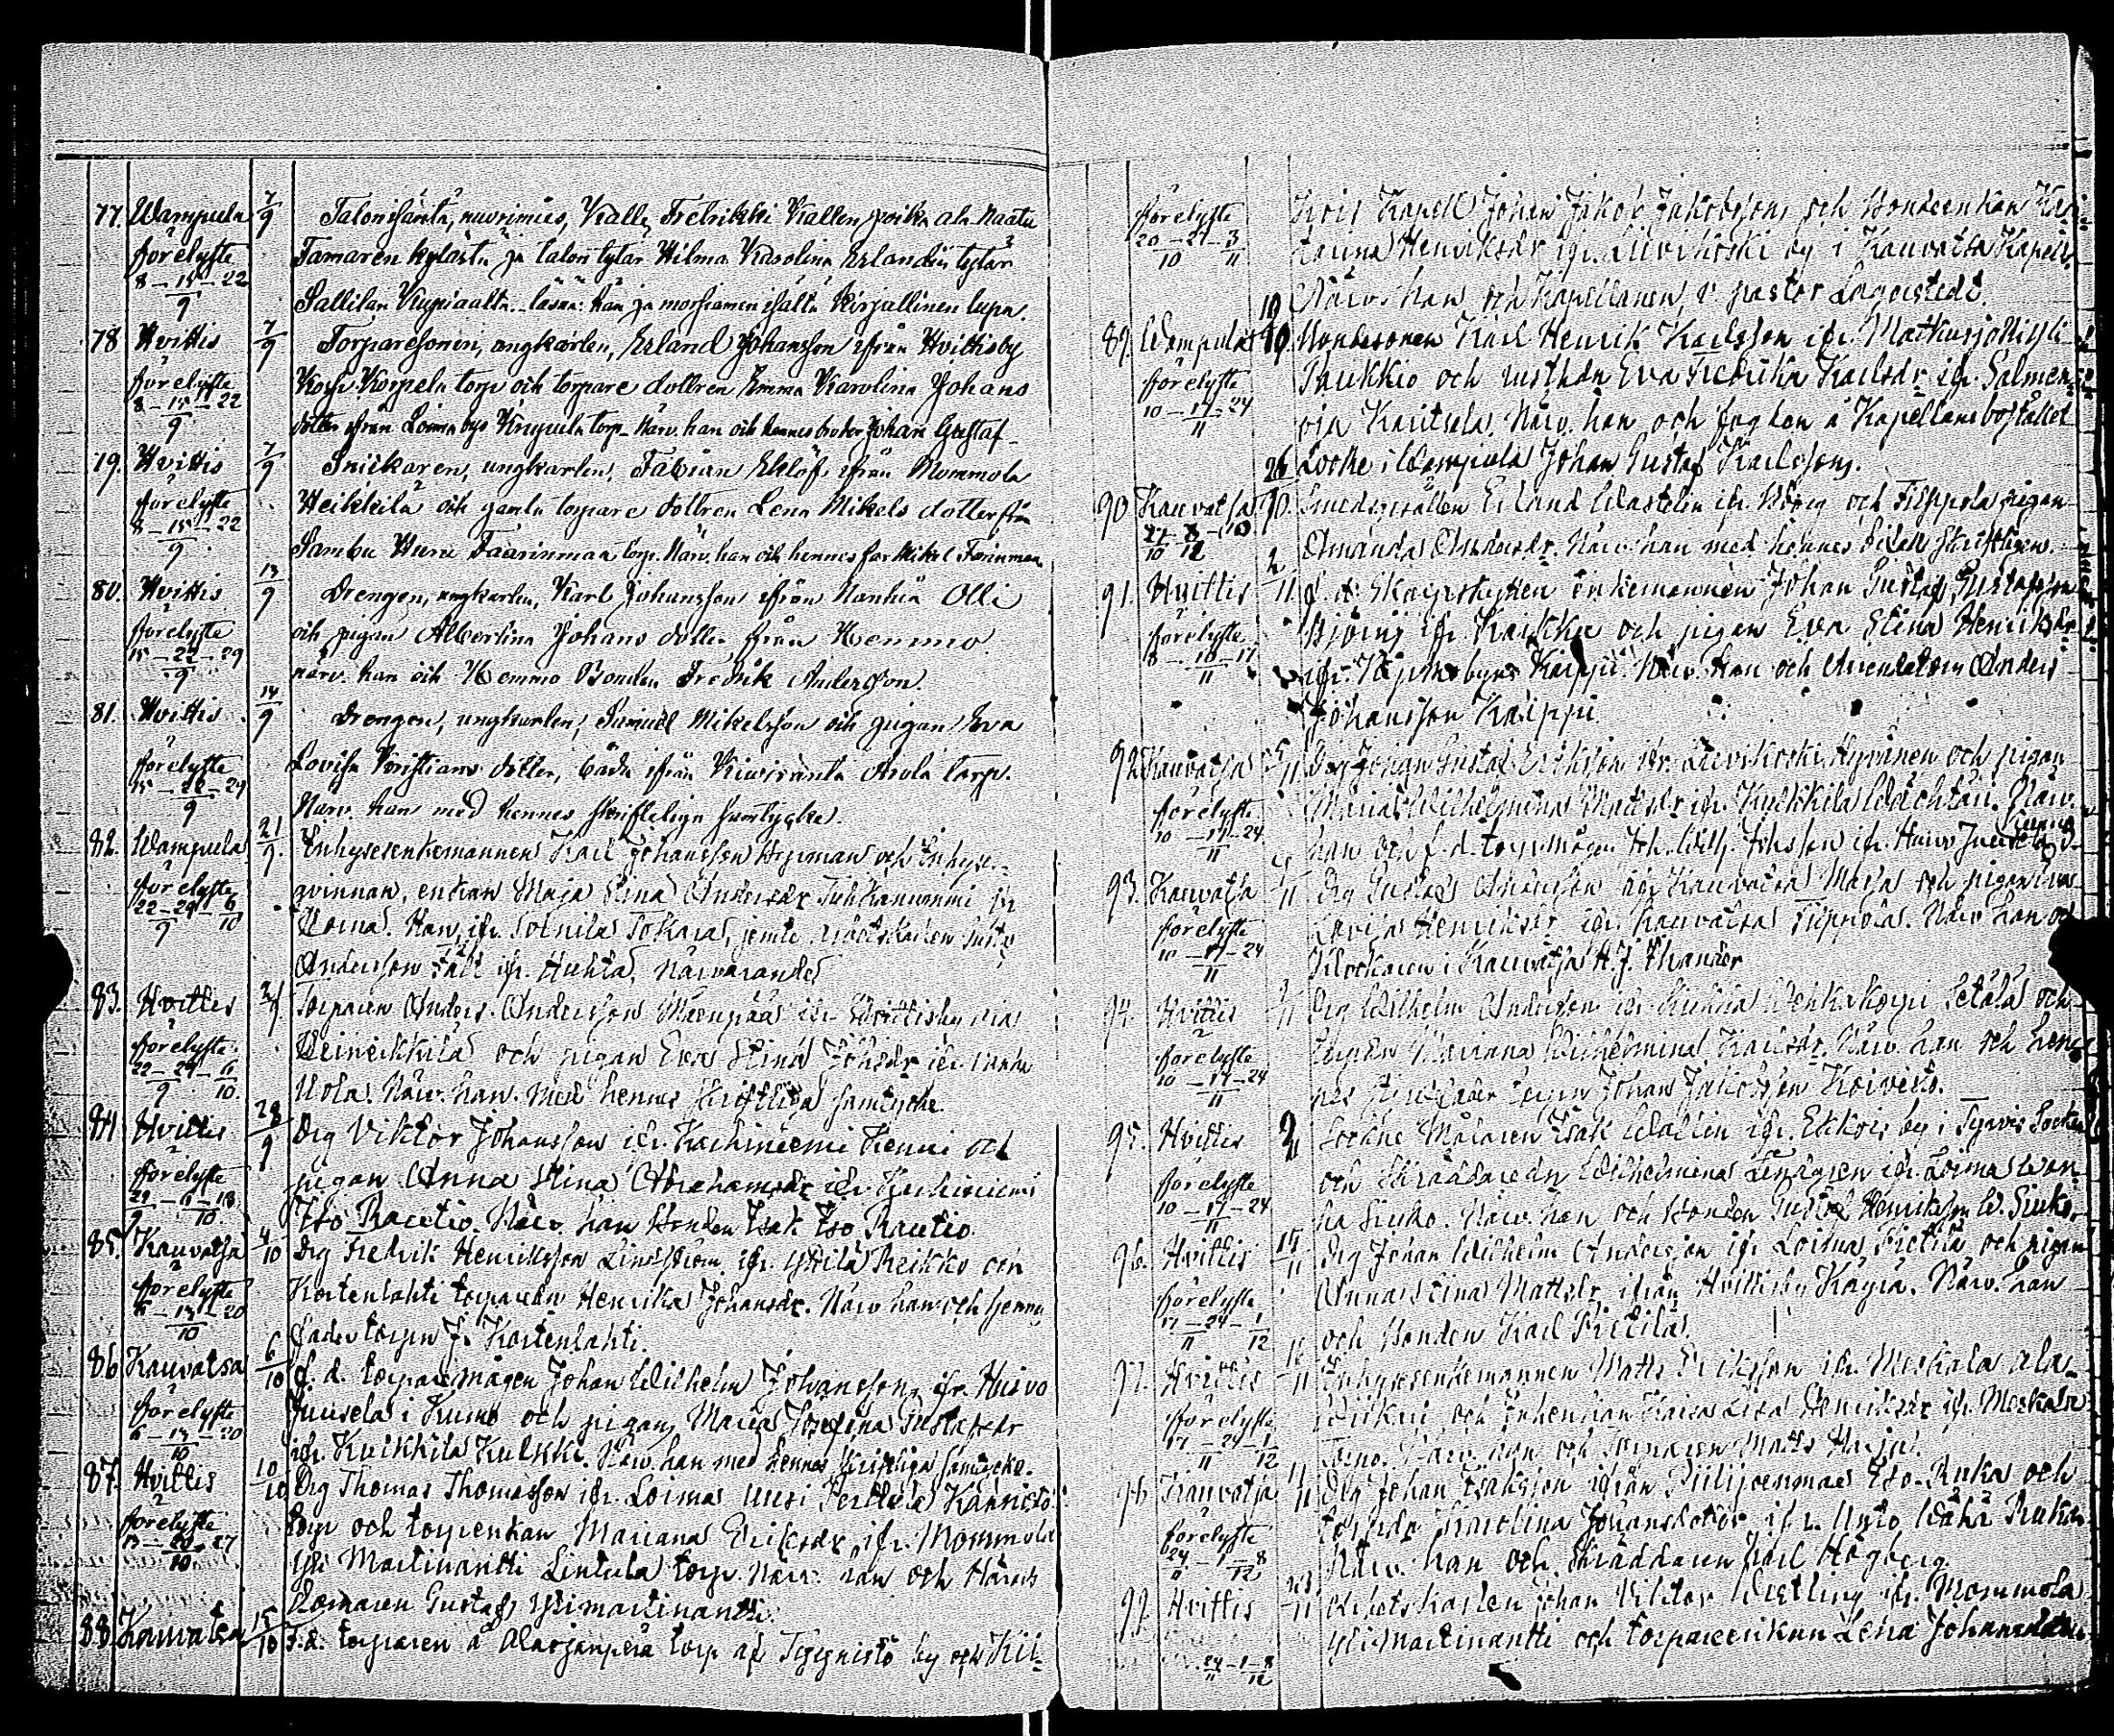 77. Wampula 7/9 Talonisäntä, nuorimies, Kalle Fredrikki Kallen poika ala-Naatu
förelyste Tamaren kylästä ja talon tytär Wilma Karolina Erlandin tytär
8-15-22/9 Sallilan Krupiaalta. läsnä: hän ja morsiamen isältä kirjallinen lupa.
78 Hvittis 7/9 Torparesonen, ungkarlen, Erland Johansson ifrån Hvittisby
förelyste Korpi Korpela torp och torpare dottren Emma Karolina Johans
8-15-22/9 dotter ifrån Loima bys Krupula torp. Närv. han och hennes broder Johan Gustaf
79. Hvittis 7/9 Snickaren, ungkarlen, Fabian Eklöf ifrån Mommola
förelyste Heikkilä och gamla torpare dottren Lena Mikels dotter från
8-15-22/9 Sambu Huru Taarinmaa torp. Närv. han och hennes far Mikel
80. Hvittis 13/9 Drengen, ungkarlen, Karl Johansson ifrån Nanhia Olli
förelyste och pigan Albertina Johans dotter från Hemmo.
15-22-29/9 närv. han och Hemmo Bonden Fredrik Andersson.
81. Hvittis 14/9 Drengen, ungkarlen, Samuel Mikelsson och pigan Eva
förelyste Lovisa Kristians dotter, båda ifrån Kiviranta Anola torp.
15-22-29/9 Närv. han med hennes skriftliga samtycke.
82. Wampula 21/9 Inhysesenkemannen Karl Johansson Hyrman och Inhyses-
förelyste qvinnan, enkan Maja Stina Andersdr
22-29/9-6/10 Han, ifr. Soinila Tokara, jemte
Andersson Fält ifr. Huhta, närvarande
83. Hvittis 21/9 Torparen Anders Andersson ifr Hvittisby
förelyste och pigan Eva Stina Johsdr ifr.
22-29/9-6/10 Uola. Närv. han. Med hennes skriftliga samtycke.
84 Hvittis 28/9 Drg Viktor Johansson ifr. Karhiniemi Kenni och
förelyste pigan Anna Stina Abrahamsdr ifr. Karhiniemi
29/9-6-13/10 Iso Rautio. Närv. han Bonden Isak Iso Rautio.
85. Kauvatsa 4/10 Drg Fredrik Henriksson Lindström ifr. Yttilä Reikko och
förelyste Kortenlahti torparedr Henrika Johansdr. Närv han och hennes
6-13-20/10 fader torpn J. Kortenlahti.
86. Kauvatsa 6/10 f. d. torparemågen Johan Wilhelm Johansson, ifr. Huivo
förelyste Juusela i Kumo och pigan Maria Josefina Gustafsdr
6-13-20/10 ifr. Kulkkila Kulkki. Närv. han med hennes skriftliga samtycke.
87. Hvittis 10/10 Drg Thomas Thomasson ifr. Loima Uusi Perttula Kannisto
förelyste torp och torpenkan Mariana Eriksdr ifr. Mommola
13-20-27/10 Yli Martinantti Lintula torp. Närv: han och Härads
Domaren Gustaf Ylimartinantti.
88. Kauvatsa 15/10 F.d. torparen å Alarjanperä torp af Tyynistö by och Kii-
förelyste kois Kapell Johan Jakob Jakobsson och Bondeenkan Ka-
20-27/10-3/11 tarina Henriksdr ifr. Liivikoski by i Kauvatsa Kapell.
Närv. han och Kapellanen, v. pastor Lagerstedt.
89. Wampula 19/10 Bondesonen Karl Henrik Karlsson ifr. Matkusjoki Yli
förelyste Paukkio och rusthdr Eva Fredrika Karlsdr ifr. Salmen-
10-17-24/11 oja Kautsala. Närv. han och fogden å Kapellansbostället
Locke i Wampula Johan Gustaf Karlsson.
90 Kauvatsa 26/10 Smedgesällen Erland Wastelin ifr. och Filppola pigan
27/10 Amanda Andersdr. Närv. han med hennes skriftligen.
91. Hvittis 2/11 f. d. Skarpskytten enkemannen Johan Gustaf Gustafsson
förelyste Björnj ifr. Raikka och pigan Eva Stina Henriksdr
-10-17/11 ifr. Käppi. Närv. han och Arendatorn Anders
Johansson Kaippi.
92 Kauvatsa 5/11 Drg Johan Gustaf Eriksson ifr. Liivikoski Hyvönen och pigan
förelyste Maria Wilhelmina Mattsdr ifr. Kulkkila Wächtäri. Närv.
10-17-24/11 han och f. d. torp.mågen Joh. Wilh. Johsson ifr. Huivo Juusela
93. Kauvatsa /11 Drg Gustaf Andersson ifr Kauvatsa Marja och pigan Eva
förelyste Lovisa Henriksdr ifr. Kauvatsa Filppola. Närv. han och
10-17-24/11 klockaren i Kauvatsa H. J. Thander
94. Hvittis /11 Drg Wilhelm Andersson ifr. Setälä och
förelyste Mariana Wilhelmina Karlsdr. Närv. han och hen-
10-17-24/11 nes torpn Johan Jakobsson Koivisto.
95. Hvittis /11 Sockne Målaren Isak Wallin ifr. Ekkois by i Tyrvis Socken
förelyste och Skräddaredr Wilhelmina Lindgren ifr. Loima Wan-
10-17-24/11 ha Siuko. Närv. han och Bonden Gustaf Henriksson W. Siuko.
96. Hvittis 14/11 Drg Johan Wilhelm Andersson ifr Loima Pietilä och pigan
förelyste Anna Stina Mattsdr ifrån Hvittisby Käyrä. Närv. han
17-24/11-1/12 och Bonden Karl Pietilä.
97. Hvittis /11 Inhysesenkemannen Matts Eriksson ifr. Meskala ala
förelyste och Inhenkan Kaisa Lisa Henriksdr ifr. Meskala
17-24/11-1/12 Närv. han och Torparen Matts Harju.
98. Kauvatsa /11 Drg Johan Isaksson ifrån Piilijoenmaa Iso-Ruka och
förelyste torpdr Karolina Johansdotter ifr. Unto Wähä Ruka
24/11-1-8/12 Närv. han och Skräddaren Karl Högberg.
99. Hvittis /11 Arbetskarlen Johan Viktor Westling ifr. Mommola
24/11-1-8/12 Ylimartinantti och torpareenkan Lena Johansdotter